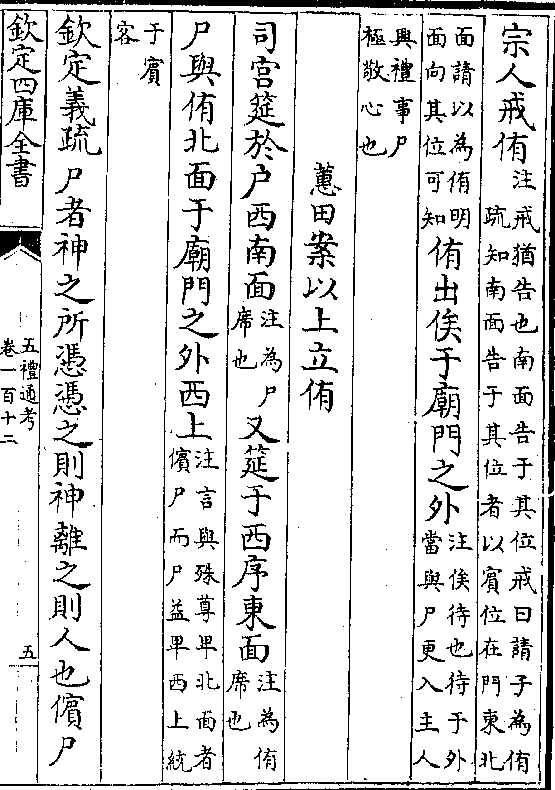 宗人戒侑注戒猶告也南面告于其位戒曰請子為侑
疏知南面告于其位者以賓位在門東北
面請以為侑明
面向其位可知侑出俟于廟門之外注俟待也待于外
當與尸更入主人
興禮事尸
極敬心也
蕙田案以上立侑
司宫筵於户西南面注為尸
席也又筵于西序東面注為侑
席也
尸與侑北面于廟門之外西上注言與殊尊卑北面者
儐尸而尸益卑西上統
于賓
客
欽定義疏尸者神之所憑憑之則神離之則人也儐尸
欽定四庫全書
五禮通考
卷一百十二
五